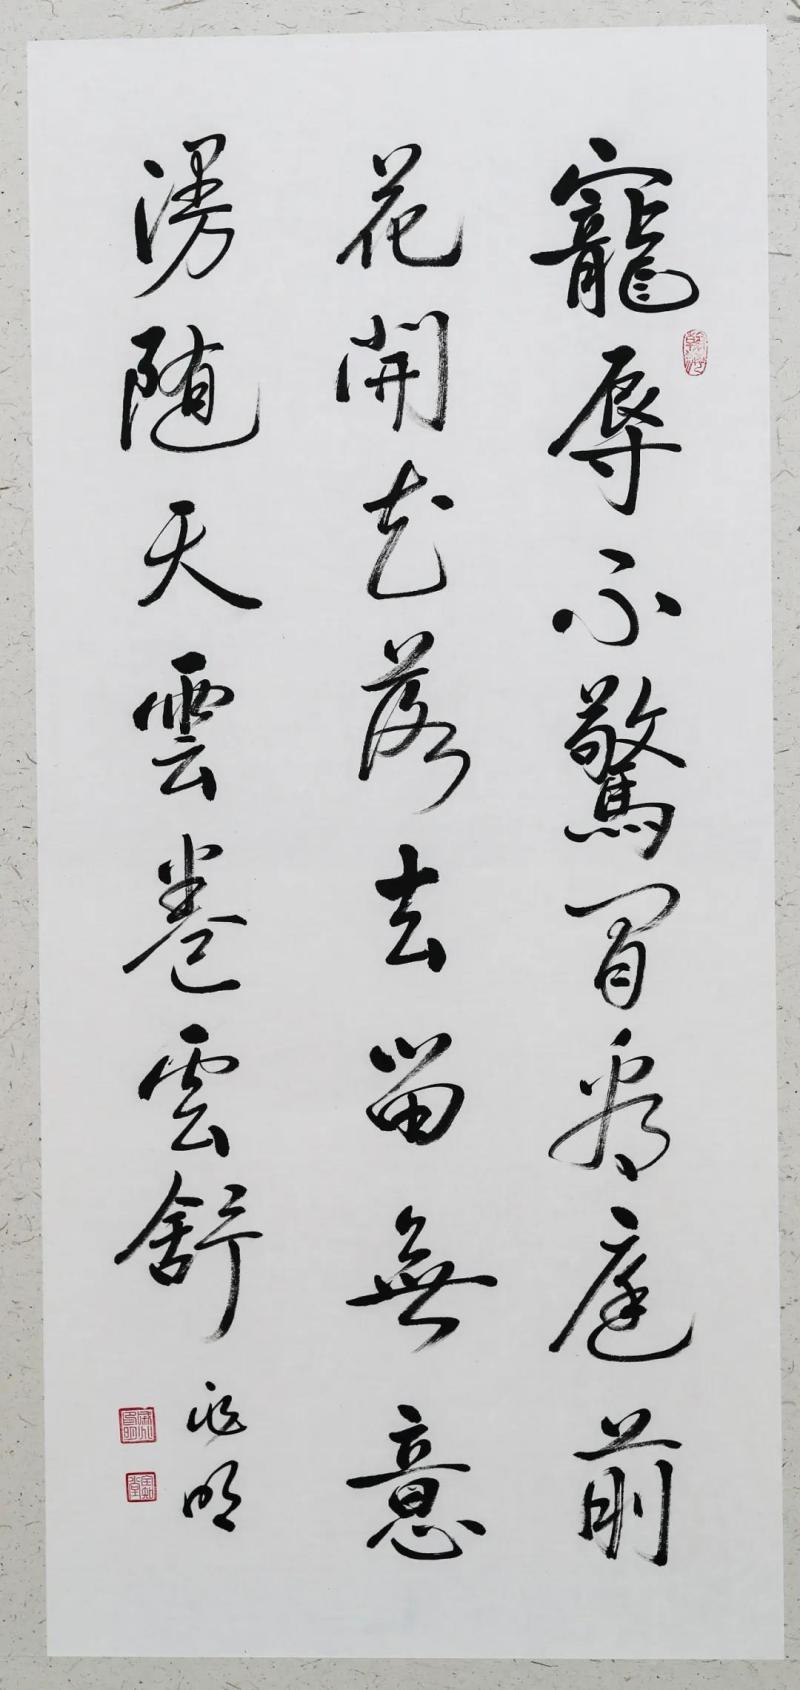 寵辱不驚閒看庭前
花開花落去留無意
漫随天雲卷雲舒